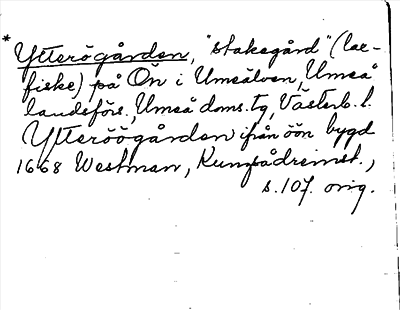 * Ytterögården, "stakagård" (lax-
fiske) på Ön i Umeälven, Umeå
landsförs., Umeå doms.tg, Västerb. l.
Ytteröögården ifrån öön bygd
1668 Westman,
s. 107. orig.